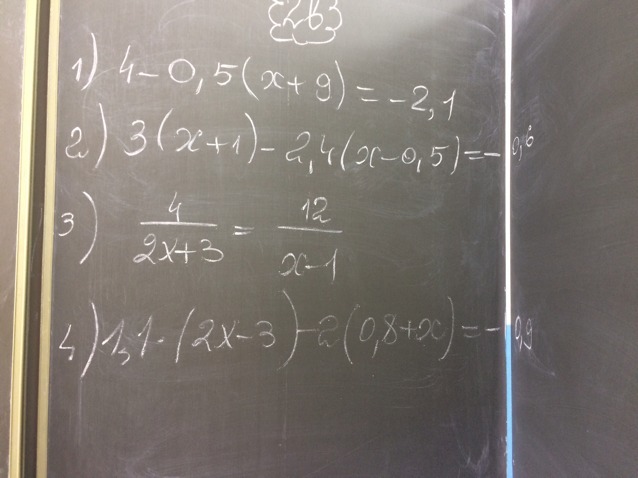 2в
1) 4 - 0,5(x+9) = -2,1
2) 3(x+1) - 2,4(x-0,5) = -0,6
3) 4/(2x+3) = 12/(x-1)
4) 1,1 - (2x-3) - 2(0,8+x) = -0,9